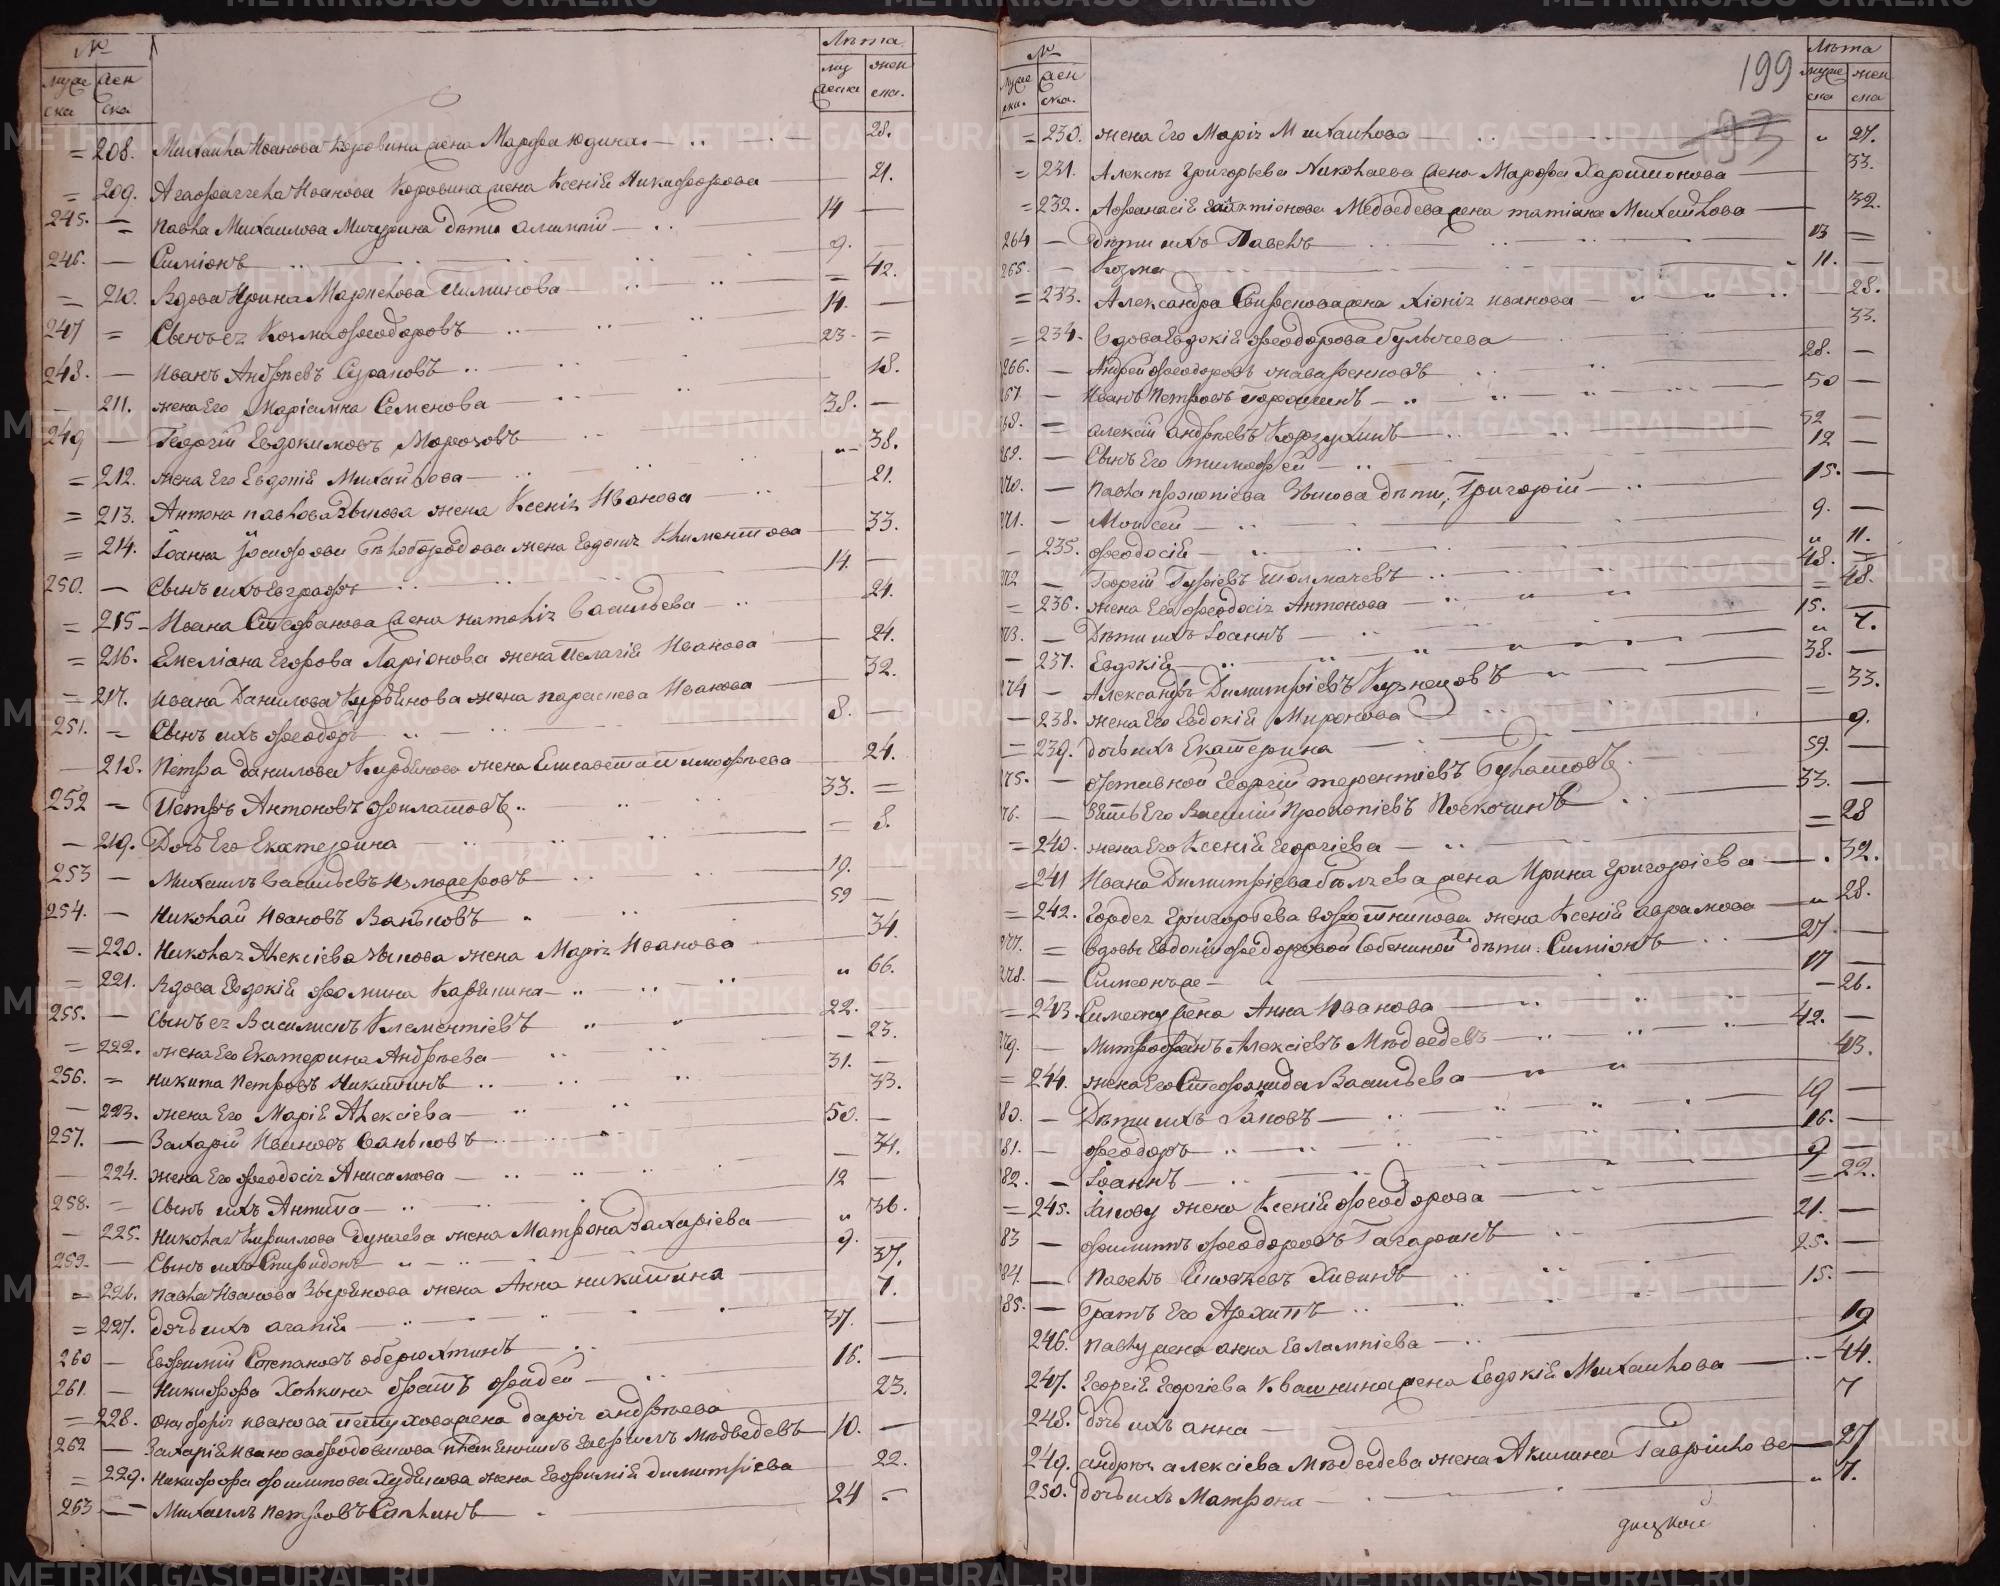 № Лѣта
муже ска жен ска муж еска жен ска.
= 208. Михаила Иванова Коровина жена Марфа Юдина. 28.
= 209. Агафаггела Иванова Коровина жена Ксенія Никифорова 21.
245. = Павла Михаилова Мичурина дѣти 14
246. — Симіонъ 9.
= 210. Вдова Ирина Маркелова 42.
247 = Сынъ ея Козма Феодоровъ 14.
248. — Иванъ Андрѣевъ 23
211. жена Его Маріамна Семенова 18.
249 — Георгій Евдокимовъ Морозовъ 38.
= 212. жена Его Евдокія Михайлова 38.
= 213. Антона Павлова Зыкова жена Ксенія Иванова 21.
= 214. Іоанна Іосифова Бѣлобородова жена Евдокія Климентова 33.
250. — Сынъ ихъ Евграфъ 14.
= 215 Ивана Стефанова жена Наталія Васильева 24.
= 216. Емеліана Егорова Ларіонова жена Пелагія Иванова 24.
= 217. Ивана Данилова жена Параскева Иванова 32.
251. = Сынъ ихъ Феодоръ 8.
218. Петра Данилова жена Елисавета Тимофѣева 24.
252 = Петръ Антоновъ Филатовъ 33.
— 219. Дочь Его Екатерина 8.
253 — Михаилъ Васильевъ 19.
254. — Николай Ивановъ Ваньковъ 59
= 220. Николая Алексіева Зыкова жена Марія Иванова 34.
= 221. Вдова Евдокія Фомина 66.
255. — Сынъ ея Василискъ Клементіевъ 22.
= 222. жена Его Екатерина Андрѣева 23.
256. = Никита Петровъ Никитинъ 31.
— 223. жена Его Марія Алексіева 33.
257. — Захарій Ивановъ Ваньковъ 50.
224. жена Его Феодосія Анисимова 34.
258. = Сынъ ихъ Антипа 12
— 225. Николая Кириллова Дунаева жена Матрона Захаріева 36.
259. — Сынъ ихъ Спиридонъ 9.
= 226. Павла Иванова жена Анна Никитина 37.
= 227. дочь ихъ Агапія 7.
260 — Евфимій Степановъ Оберюхтинъ 37.
261. — Никифора Холкина братъ Фадей 16.
= 228. Иванова жена Дарія Андрѣева 23.
262 — Захарія Иванова Медведевъ 10.
= 229. Никифора Филипова Худякова жена Евфимія Димитріева 22.
263 — Михаилъ Петровъ 24
№ 199 Лѣта
муже ска. жен ска. 93 муже ска жен ска
= 230. жена Его Марія Михаилова 27.
= 231. Алексія Григорьева Николаева жена Марфа Харитонова 33.
= 232. Афанасія Медведева жена Татіана Михайлова 32.
264 — дѣти ихъ Павелъ 13
265. — Козма 11.
= 233. Александра жена Хіонія Иванова 28.
= 234. вдова Евдокія Феодорова Булычева 33.
266. — Андрей Феодоровъ 28.
267. — Иванъ Петровъ 50
268. — Алексій Андрѣевъ Корзухинъ 52
269. — Сынъ Его Тимофей 12
270. — Павла Прокопіева Зыкова дѣти, Григорій 15.
271. — Моисей 9.
— 235. Феодосія 11.
272 — Георгій Гуріевъ Толмачевъ 48.
= 236. жена Его Феодосія Антонова 48.
273. — Дѣти ихъ Іоаннъ 15.
— 237. Евдокія 7.
274 — Александръ Димитріевъ Кузнецовъ 38.
— 238. жена Его Евдокія Миронова 33.
= 239. дочь ихъ Екатерина 9.
275. — отставной Георгій Терентіевъ Булатовъ 59.
276. — Зять Его Василій Прокопіевъ Поскочинъ 33.
= 240. жена Его Ксенія Георгіева 28
= 241 Ивана Димитріева жена Ирина Григоріева 32.
= 242. Гордея Григорьева жена Ксенія Аврамова 28.
277. = вдовы Евдокіи Феодоровой Собениной дѣти: Симіонъ 27.
278. — Симеонъ же 17
= 243. Симеону жена Анна Иванова 26.
279. — Митрофанъ Алексіевъ Мѣдведевъ 42.
= 244. жена Его Стефанида Васильева 43.
280. — Дѣти ихъ Іаковъ 19
281. — Феодоръ 16.
282. — Іоаннъ 9
= 245. Іакову жена Ксенія Феодорова 22.
283 — Филиппъ Феодоровъ Гагаринъ 21.
284. — Павелъ 25.
285. — Братъ Его Архиппъ 15.
246. Павлу жена Анна Евлампіева 19
247. Георгія Георгіева Квашнина жена Евдокія Михаилова 44.
248. дочь ихъ Анна 7
249. Андрѣя Алексіева Мѣдведева жена Акилина Гавріилова 27
250. дочь ихъ Матрона 7.